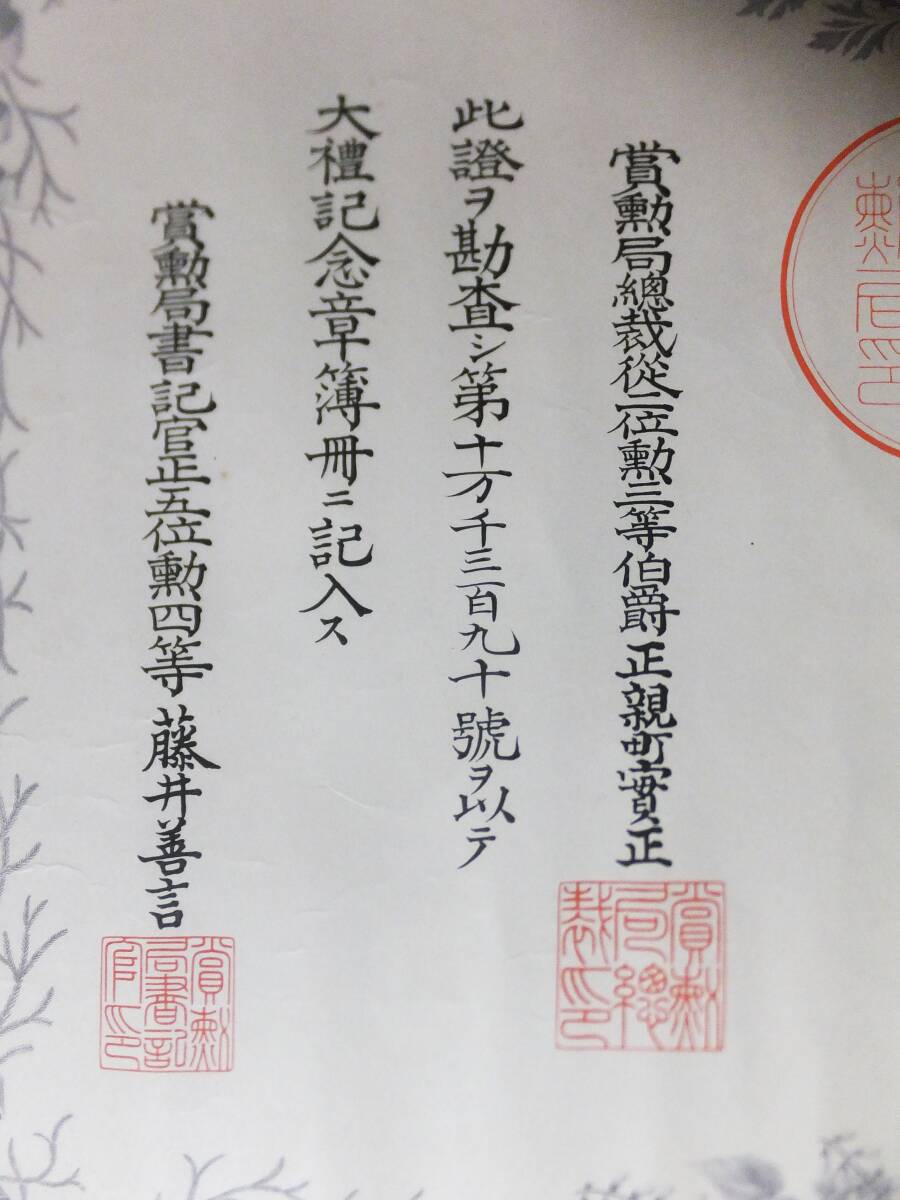 賞勲局印
賞勲局總裁從二位勲三等伯爵正親町實正
賞勲局總裁印
此證ヲ勘査シ第十万千三百九十號ヲ以テ
大禮記念章簿冊ニ記入ス
賞勲局書記官正五位勲四等藤井善言
賞勲局書記官印